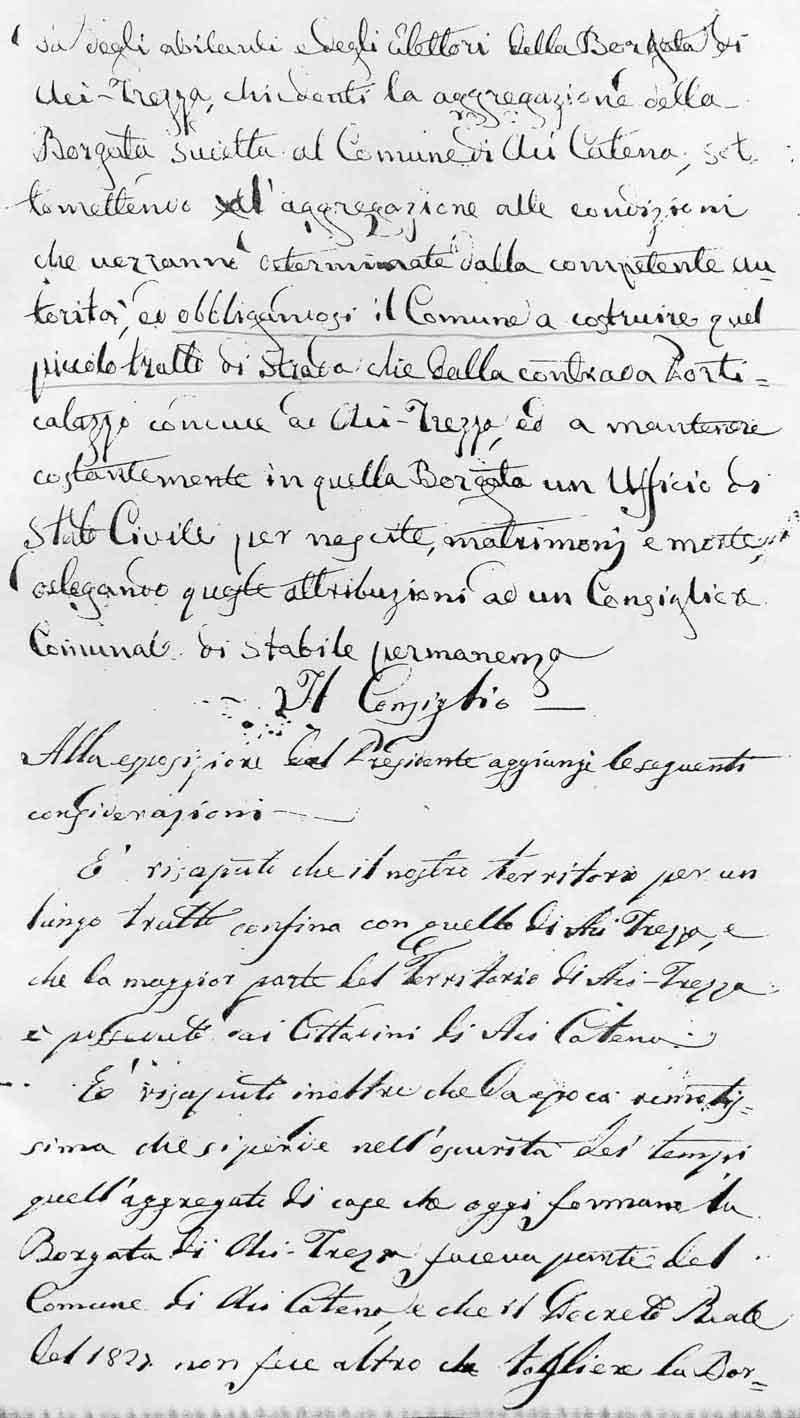 sa degli abitanti e degli Elettori della Borgata di
Aci-Trezza, chiedenti la aggregazione della
Borgata sudetta al Comune di Aci Catena, sot
tomettendo l'aggregazione alle condizioni
che verranno determinate dalla competente au-
torità, ed obbligandosi il Comune a costruire quel
piccolo tratto di strada che dalla contrada Porti=
calazzo conduce ad Aci-Trezza, ed a mantenere
costantemente in quella Borgata un Ufficio di
Stato Civile per nascite, matrimonj e morte,
delegando queste attribuzioni ad un Consigliere
Comunale di stabile permanenza
Il Consiglio —
Alla esposizione del Presidente aggiunge le seguenti
considerazioni —
E' risaputo che il nostro territorio per un
lungo tratto confina con quello di Aci Trezza, e
che la maggior parte del Territorio di Aci-Trezza
è posseduto dai Cittadini di Aci Catena.
E' risaputo inoltre che da epoca remotis-
sima che si perde nell'oscurità dei tempi
quell'aggregato di case che oggi formano la
Borgata di Aci-Trezza faceva parte del
Comune di Aci Catena, e che il Decreto Reale
del non fece altro che togliere la Bor=